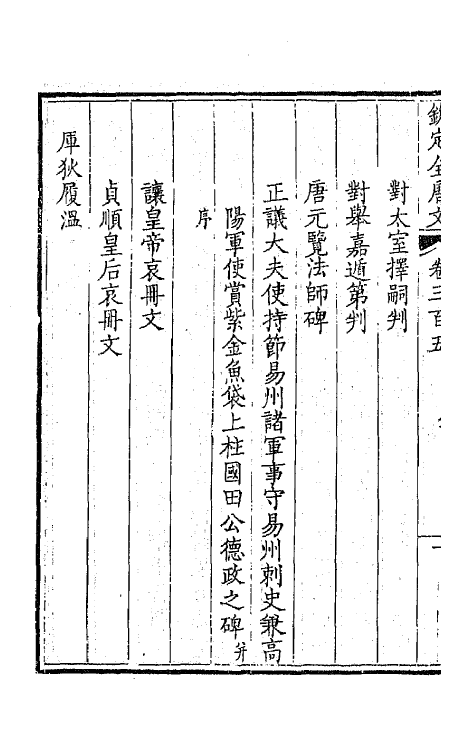 欽定全唐文 卷三百五
對太室擇嗣判
對舉嘉遁第判
唐元覽法師碑
正議大夫使持節易州諸軍事守易州刺史兼高
陽軍使賞紫金魚袋上柱國田公德政之碑 并
序
讓皇帝哀冊文
貞順皇后哀冊文
厙狄履溫